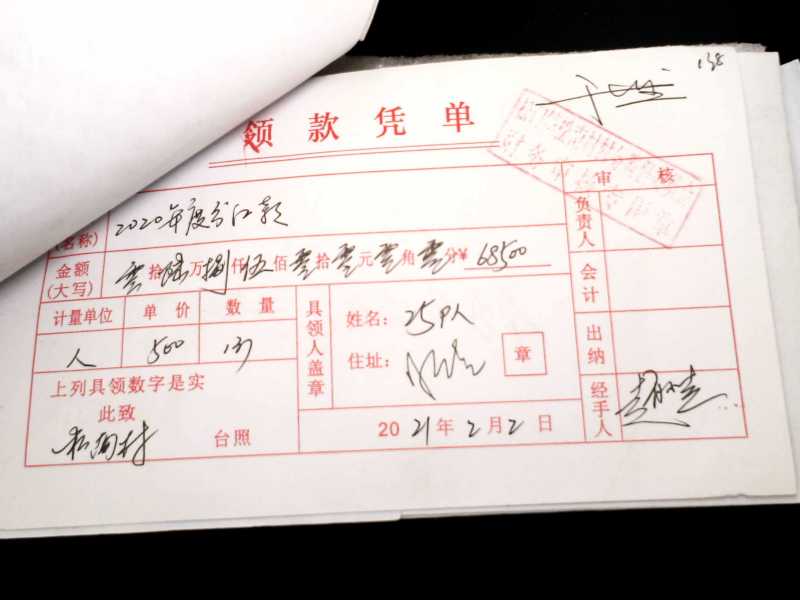 138
领款凭单
(名称) 2020年度分红款
金额(大写) 零拾陆万捌仟伍佰零拾零元零角零分¥ 68500
计量单位 单价 数量
人 500 137
上列具领数字是实
此致
村 台照
具领人盖章
姓名: 25户人
住址:
章
2021年2月2日
审核
负责人
会计
出纳
经手人